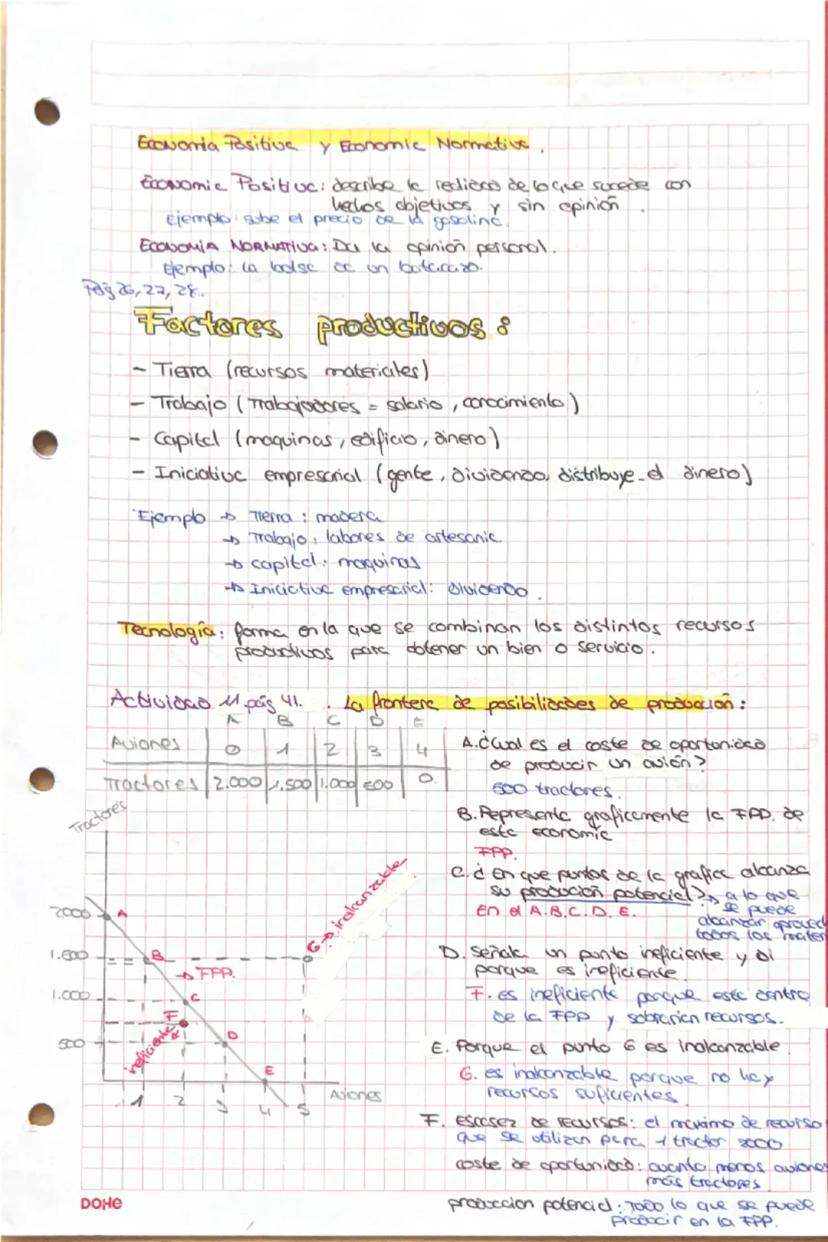 Economía Positiva y Economía Normativa.
Economía Positiva: describe la realidad de lo que sucede con
hechos objetivos y sin opinión.
Ejemplo: sube el precio de la gasolina.
ECONOMÍA NORMATIVA: Da la opinión personal.
Ejemplo: la bolsa da un batacazo.
Pág 26, 27, 28.
Factores productivos:
- Tierra (recursos materiales)
- Trabajo (Trabajadores = salario, conocimiento)
- Capital (maquinas, edificio, dinero)
- Iniciativa empresarial (gente, dividendo, distribuye el dinero)
Ejemplo → Tierra: madera
→ Trabajo: labores de artesania
→ capital: maquinas
→ Iniciativa empresarial: dividendo.
Tecnología: forma en la que se combinan los distintos recursos
productivos para obtener un bien o servicio.
Actividad 11 pág 41. La frontera de posibilidades de producción:
A B C D E
Aviones 0 1 2 3 4
Tractores 2.000 1.500 1.000 500 0
A. ¿Cual es el coste de oportunidad
de producir un avión?
500 tractores.
B. Representa graficamente la FPP. de
esta economia
FPP.
C. ¿En que puntos de la grafica alcanza
su producion potencial? → a lo que
se puede
alcanzar aproved
todos los mater
En el A.B.C.D.E.
D. Señala un punto ineficiente y di
porque es ineficiente.
F. es ineficiente porque esta dentro
de la FPP y sobrarian recursos.
E. Porque el punto G es inalcanzable.
G. es inalcanzable porque no hay
recursos suficientes.
F. escasez de recursos: el maximo de recurso
que se utilizan para 1 tractor 2000
coste de oportunidad: cuanto menos aviones
más tractores
produccion potencial: Todo lo que se puede
producir en la FPP.
Tractores
2000
1.500
1.000
500
A
B
→ FPP.
C
F
ineficiente
D
E
G → inalcanzable
1 2 3 4 5
Aviones
DOHE